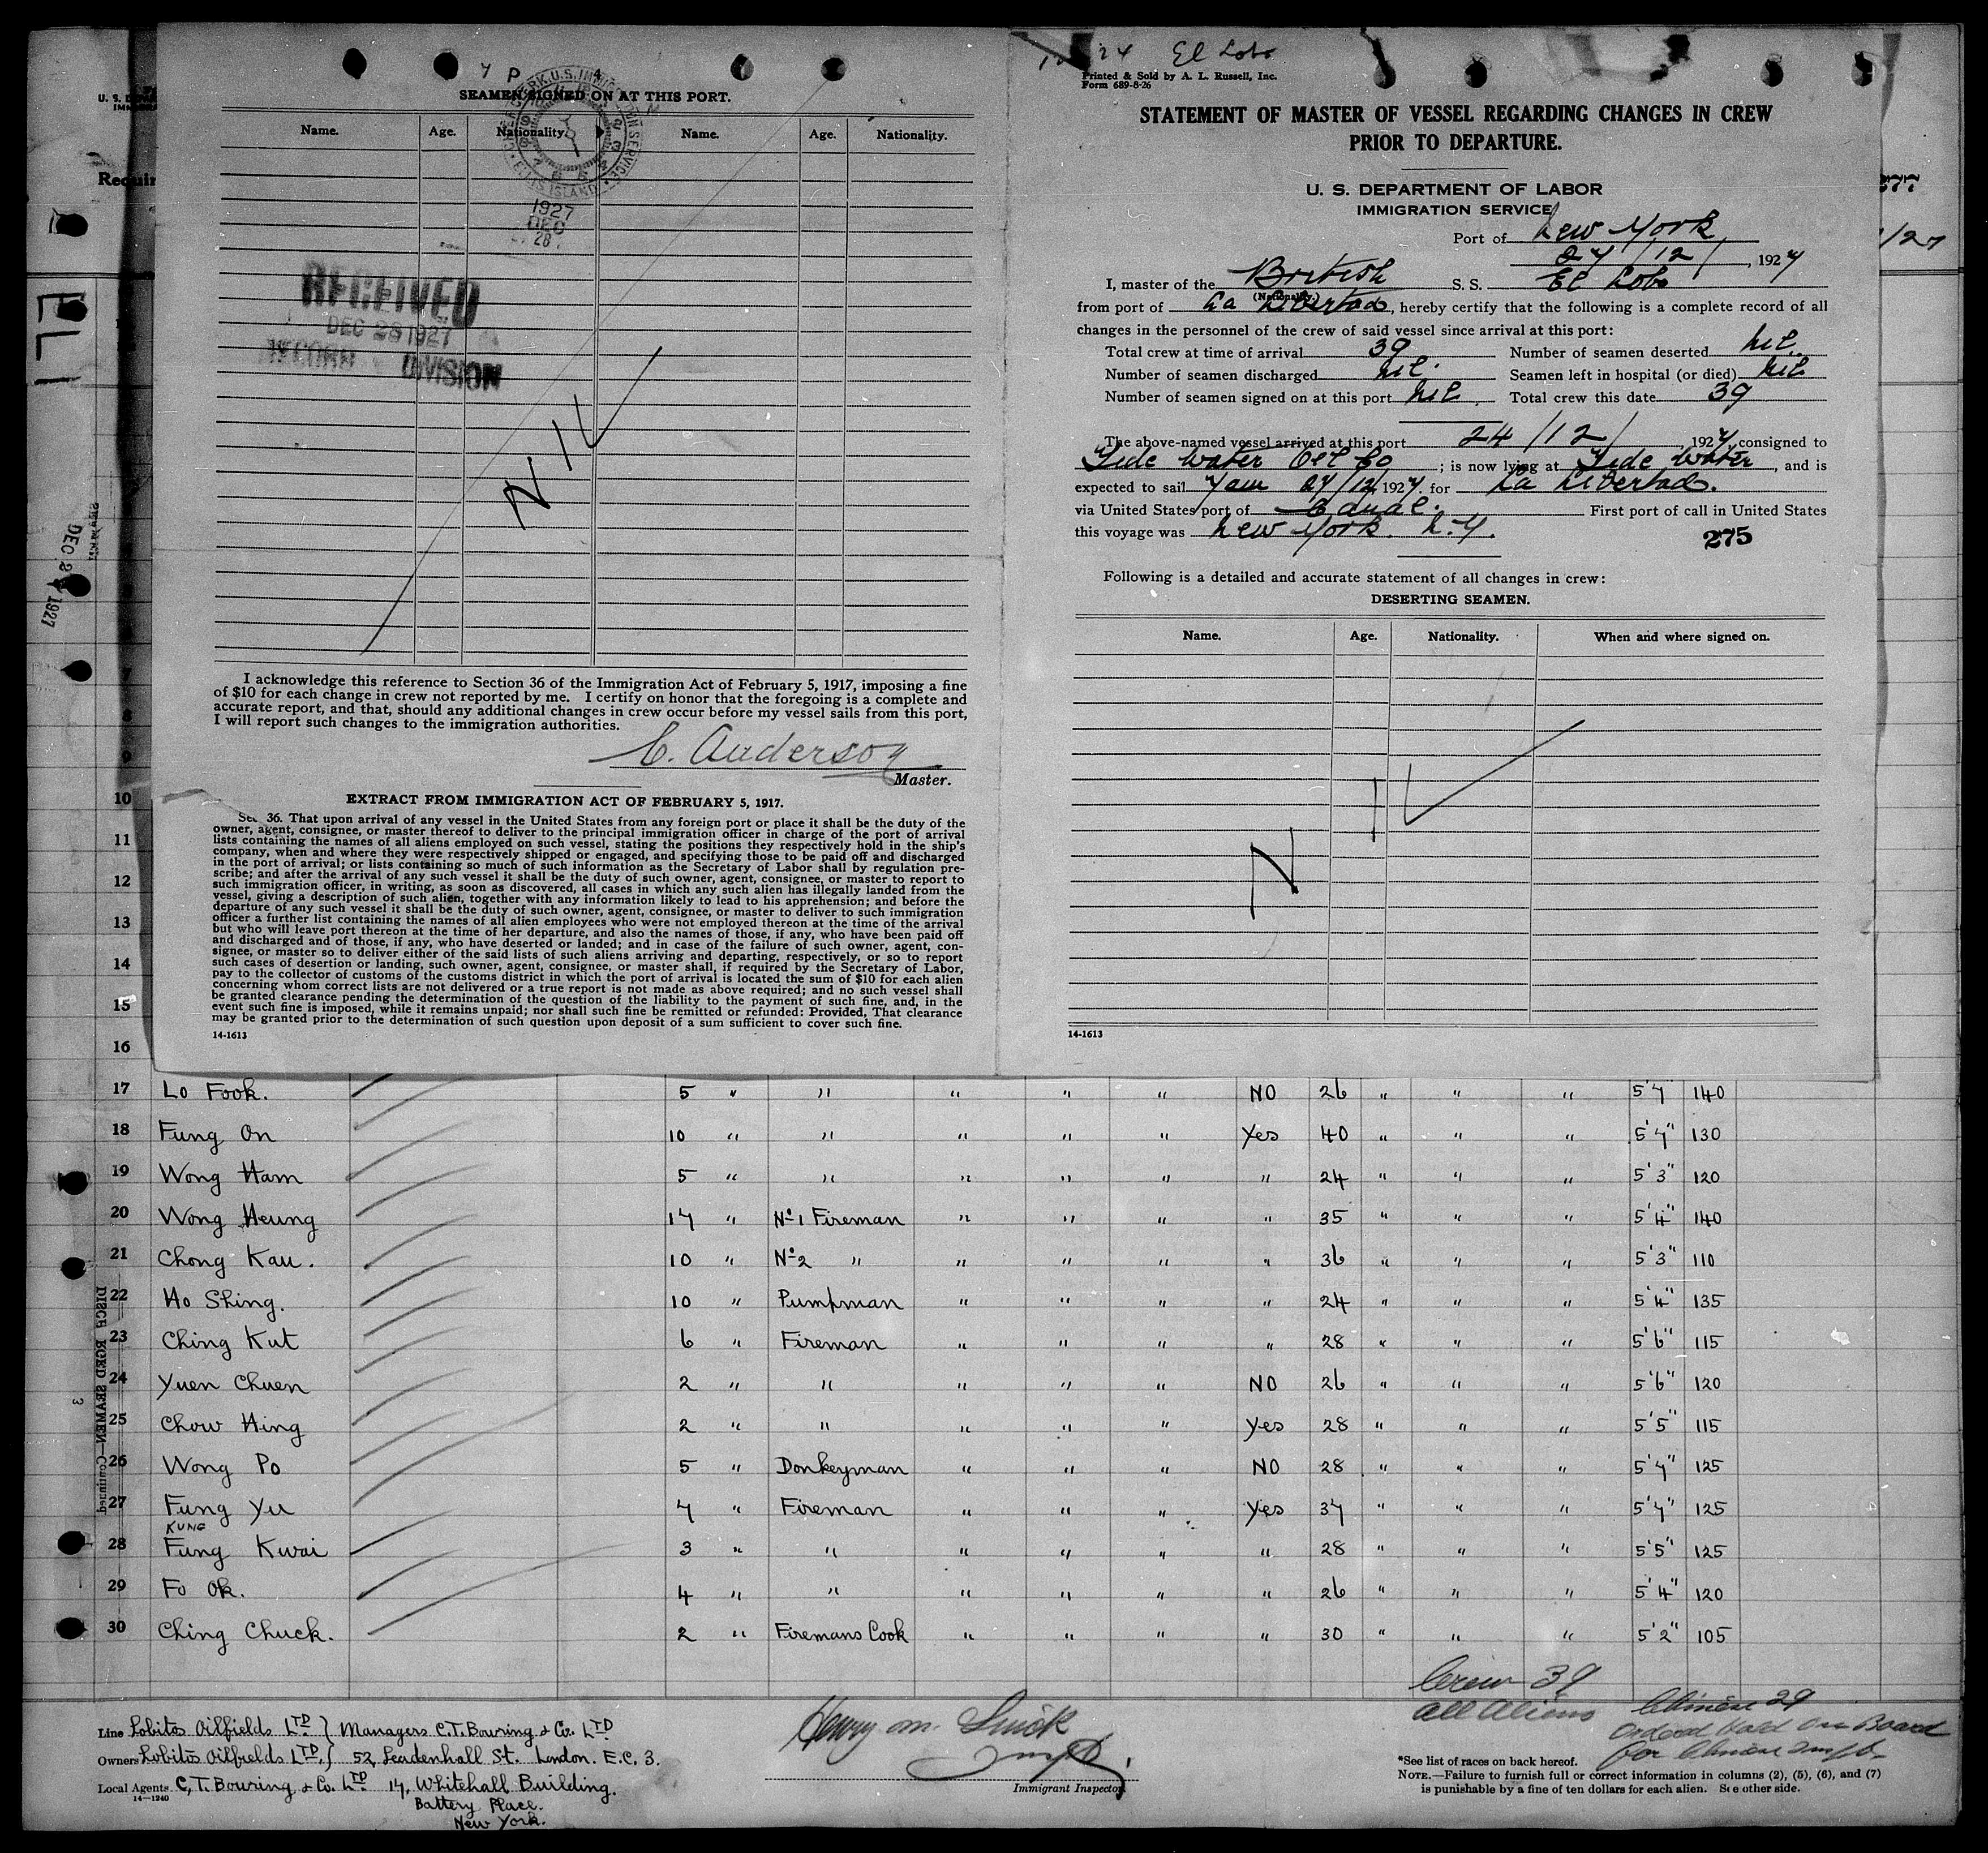 SEAMEN SIGNED ON AT THIS PORT.
Name. Age. Nationality. Name. Age. Nationality.
CLERK, U.S. IMMIGRATION SERVICE
ELLIS ISLAND
1927
DEC
28
RECEIVED
DEC 28 1927
RECORD DIVISION
NIL
I acknowledge this reference to Section 36 of the Immigration Act of February 5, 1917, imposing a fine
of $10 for each change in crew not reported by me. I certify on honor that the foregoing is a complete and
accurate report, and that, should any additional changes in crew occur before my vessel sails from this port,
I will report such changes to the immigration authorities.
C. Anderson
Master.
EXTRACT FROM IMMIGRATION ACT OF FEBRUARY 5, 1917.
Sec. 36. That upon arrival of any vessel in the United States from any foreign port or place it shall be the duty of the
owner, agent, consignee, or master thereof to deliver to the principal immigration officer in charge of the port of arrival
lists containing the names of all aliens employed on such vessel, stating the positions they respectively hold in the ship's
company, when and where they were respectively shipped or engaged, and specifying those to be paid off and discharged
in the port of arrival; or lists containing so much of such information as the Secretary of Labor shall by regulation pre-
scribe; and after the arrival of any such vessel it shall be the duty of such owner, agent, consignee, or master to report to
such immigration officer, in writing, as soon as discovered, all cases in which any such alien has illegally landed from the
vessel, giving a description of such alien, together with any information likely to lead to his apprehension; and before the
departure of any such vessel it shall be the duty of such owner, agent, consignee, or master to deliver to such immigration
officer a further list containing the names of all alien employees who were not employed thereon at the time of the arrival
but who will leave port thereon at the time of her departure, and also the names of those, if any, who have been paid off
and discharged and of those, if any, who have deserted or landed; and in case of the failure of such owner, agent, con-
signee, or master so to deliver either of the said lists of such aliens arriving and departing, respectively, or so to report
such cases of desertion or landing, such owner, agent, consignee, or master shall, if required by the Secretary of Labor,
pay to the collector of customs of the customs district in which the port of arrival is located the sum of $10 for each alien
concerning whom correct lists are not delivered or a true report is not made as above required; and no such vessel shall
be granted clearance pending the determination of the question of the liability to the payment of such fine, and, in the
event such fine is imposed, while it remains unpaid; nor shall such fine be remitted or refunded: Provided, That clearance
may be granted prior to the determination of such question upon deposit of a sum sufficient to cover such fine.
14-1613
24 El Lobo
Printed & Sold by A. L. Russell, Inc.
Form 689-8-26
STATEMENT OF MASTER OF VESSEL REGARDING CHANGES IN CREW
PRIOR TO DEPARTURE.
U. S. DEPARTMENT OF LABOR
IMMIGRATION SERVICE
Port of New York
27/12/, 1927
I, master of the British S. S. El Lobo
(Nationality.)
from port of La Libertad, hereby certify that the following is a complete record of all
changes in the personnel of the crew of said vessel since arrival at this port:
Total crew at time of arrival 39 Number of seamen deserted nil.
Number of seamen discharged nil. Seamen left in hospital (or died) nil
Number of seamen signed on at this port nil. Total crew this date 39
The above-named vessel arrived at this port 24/12/, 1927, consigned to
Tide Water Oil Co; is now lying at Tide Water, and is
expected to sail 7am 27/12/1927. for La Libertad.
via United States port of Canal. First port of call in United States
this voyage was New York. N.Y.
275
Following is a detailed and accurate statement of all changes in crew:
DESERTING SEAMEN.
Name. Age. Nationality. When and where signed on.
NIL
14-1613
U. S.
277
/27
EL L
DEC 2 1927
7
8
9
10
11
12
13
14
15
16
17 Lo Fook. 5 " " " " " NO 26 " " " 5'7 140
18 Fung On 10 " " " " " Yes 40 " " " 5'7" 130
19 Wong Ham 5 " " " " " " 24 " " " 5'3" 120
20 Wong Heung 17 " No 1 Fireman " " " " 35 " " " 5'4" 140
21 Chong Kau. 10 " No 2 " " " " " 36 " " " 5'3" 110
22 Ho Shing. 10 " Pumpman " " " " 24 " " " 5'4" 135
23 Ching Kut 6 " Fireman " " " " 28 " " " 5'6" 115
24 Yuen Chuen 2 " " " " " NO 26 " " " 5'6" 120
25 Chow Hing 2 " " " " " Yes 28 " " " 5'5" 115
26 Wong Po 5 " Donkeyman " " " NO 28 " " " 5'7" 125
27 Fung Yu 7 " Fireman " " " Yes 37 " " " 5'7" 125
KUNG
28 Fung Kwai 3 " " " " " " 28 " " " 5'5" 125
29 Fo Ok. 4 " " " " " " 26 " " " 5'4" 120
30 Ching Chuck. 2 " Firemans Cook " " " " 30 " " " 5'2" 105
DISCHARGED SEAMEN—Continued
3
Crew 39
All Aliens
Chinese 29
Ordered Held On Board
for Chinese Insp.
Line Lobitos Oilfields LTD } Managers C.T. Bowring & Co. LTD
Owners Lobitos Oilfields LTD. } 52, Leadenhall St. London. E.C. 3.
Local Agents C.T. Bowring & Co. LTD 17, Whitehall Building.
14-1240
Battery Place.
New York.
Immigrant Inspector.
*See list of races on back hereof.
NOTE.—Failure to furnish full or correct information in columns (2), (5), (6), and (7)
is punishable by a fine of ten dollars for each alien. See other side.